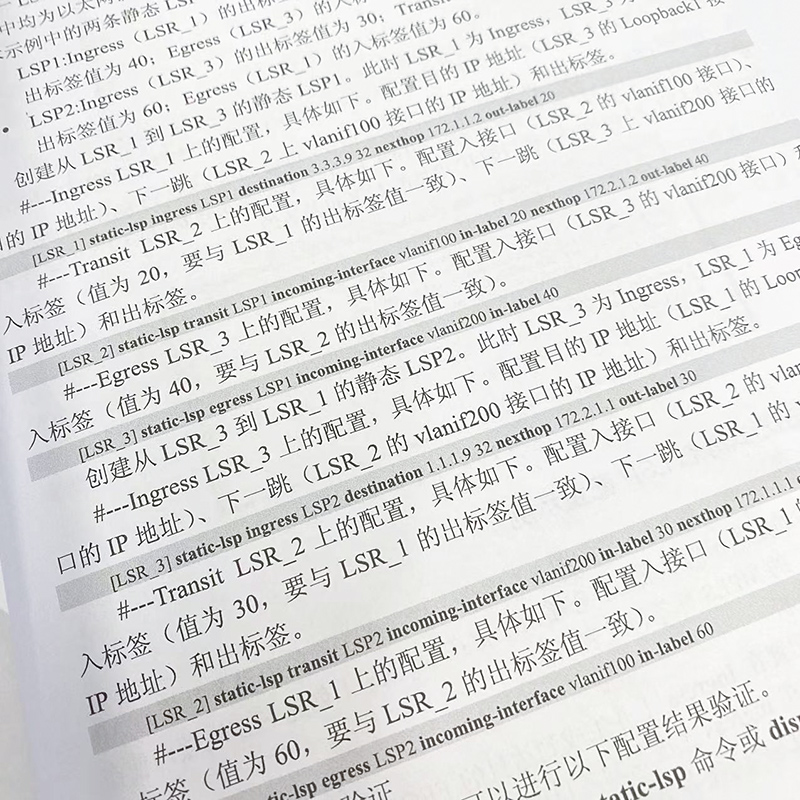 中均为以太网
示例中的两条静态 LSP
LSP1:Ingress（LSR_1）的出标
出标签值为 40；Egress（LSR_3）的入标
LSP2:Ingress（LSR_3）的出标签值为 30；Trans
出标签值为 60；Egress（LSR_1）的入标签值为 60。
创建从 LSR_1 到 LSR_3 的静态 LSP1。此时 LSR_1 为 Ingress，LSR_3 为
#---Ingress LSR_1 上的配置，具体如下。配置目的 IP 地址（LSR_3 的 Loopback1 接
的 IP 地址）、下一跳（LSR_2 上 vlanif100 接口的 IP 地址）和出标签。
[LSR_1] static-lsp ingress LSP1 destination 3.3.3.9 32 nexthop 172.1.1.2 out-label 20
#---Transit LSR_2 上的配置，具体如下。配置入接口（LSR_2 的 vlanif100 接口）、
入标签（值为 20，要与 LSR_1 的出标签值一致）、下一跳（LSR_3 上 vlanif200 接口的
IP 地址）和出标签。
[LSR_2] static-lsp transit LSP1 incoming-interface vlanif100 in-label 20 nexthop 172.2.1.2 out-label 40
#---Egress LSR_3 上的配置，具体如下。配置入接口（LSR_3 的 vlanif200 接口）和
入标签（值为 40，要与 LSR_2 的出标签值一致）。
[LSR_3] static-lsp egress LSP1 incoming-interface vlanif200 in-label 40
创建从 LSR_3 到 LSR_1 的静态 LSP2。此时 LSR_3 为 Ingress，LSR_1 为 Eg
#---Ingress LSR_3 上的配置，具体如下。配置目的 IP 地址（LSR_1 的 Loo
口的 IP 地址）、下一跳（LSR_2 的 vlanif200 接口的 IP 地址）和出标签。
[LSR_3] static-lsp ingress LSP2 destination 1.1.1.9 32 nexthop 172.2.1.1 out-label 30
#---Transit LSR_2 上的配置，具体如下。配置入接口（LSR_2 的 vlan
入标签（值为 30，要与 LSR_1 的出标签值一致）、下一跳（LSR_1 的 v
IP 地址）和出标签。
[LSR_2] static-lsp transit LSP2 incoming-interface vlanif200 in-label 30 nexthop 172.1.1.1
#---Egress LSR_1 上的配置，具体如下。配置入接口（LSR_1
标签（值为 60，要与 LSR_2 的出标签值一致）。
static-lsp egress LSP2 incoming-interface vlanif100 in-label 60
验证
可以进行以下配置结果验证。
static-lsp 命令或 disp